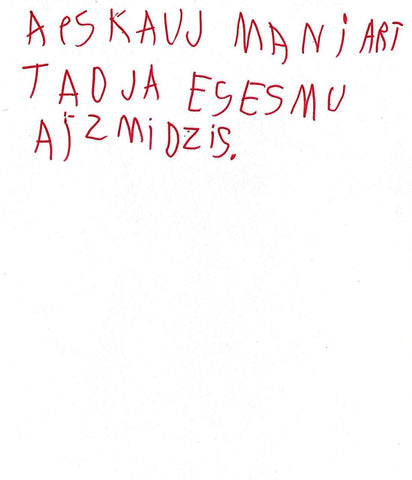 APSKAUJ MANI ARI
TADJA ESESMU
AIZMIDZIS.